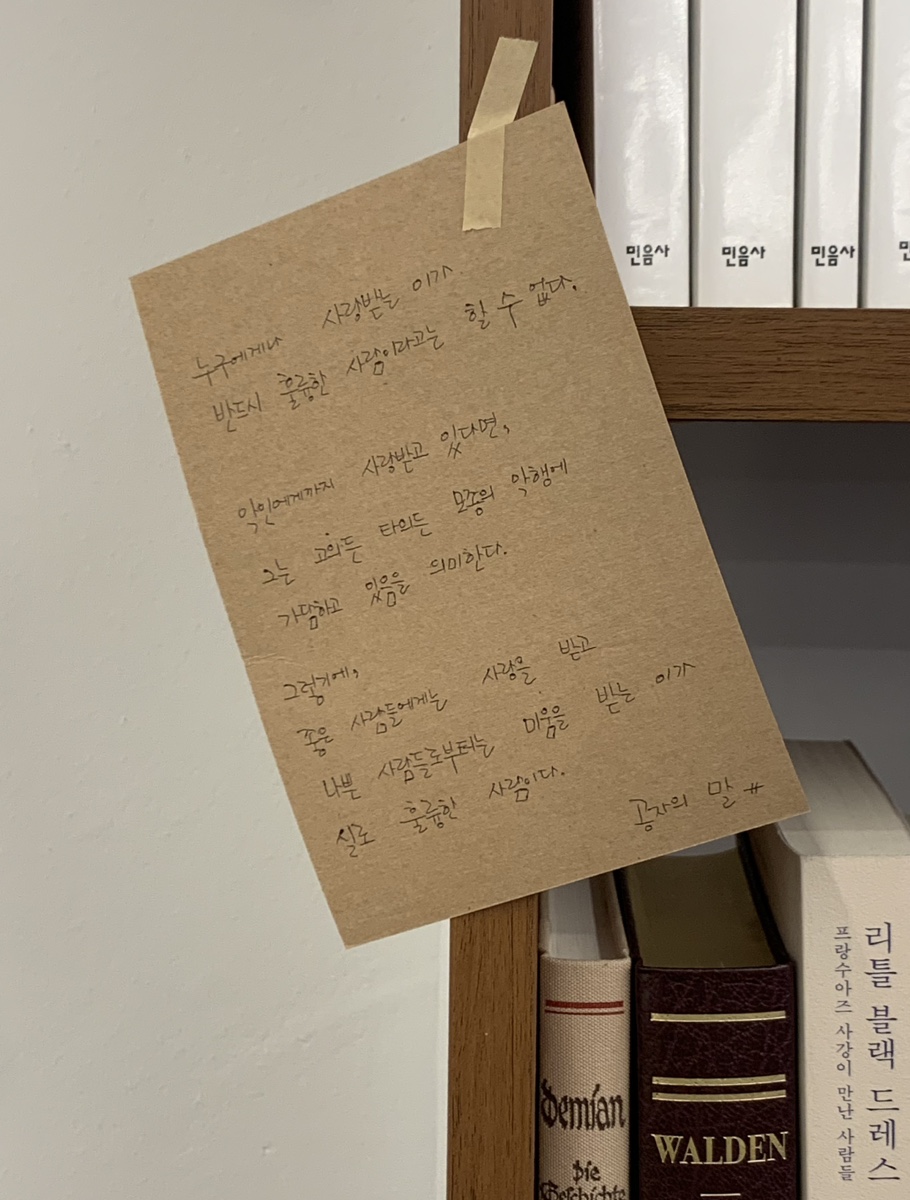 누구에게나 사랑받는 이가
반드시 훌륭한 사람이라고는 할 수 없다.
악인에게까지 사랑받고 있다면,
그는 고의든 타의든 모종의 악행에
가담하고 있음을 의미한다.
그렇기에,
좋은 사람들에게는 사랑을 받고
나쁜 사람들로부터는 미움을 받는 이가
실로 훌륭한 사람이다.
공자의 말 #
민음사
민음사
민음사
Demian
Die
Geschichte
WALDEN
리틀 블랙 드레스
프랑수아즈 사강이 만난 사람들